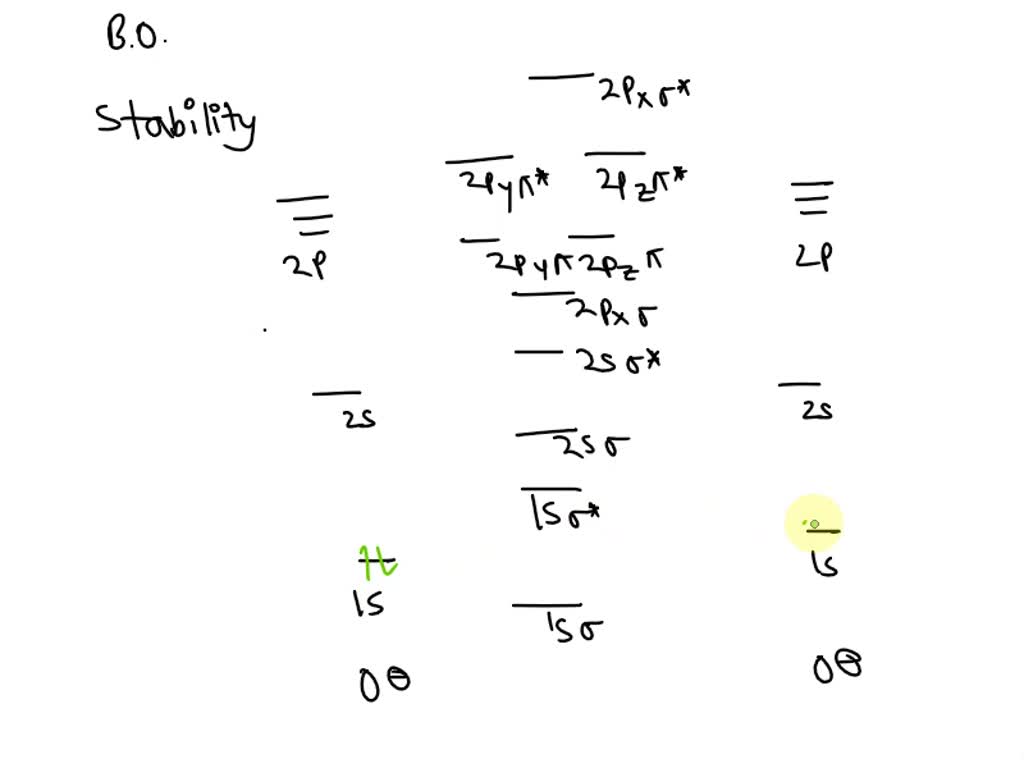 B.O.
Stability
2Pxσ*
2Pyπ* 2Pzπ*
2P 2Pyπ 2Pzπ 2P
2Pxσ
2Sσ*
2S 2S
2Sσ
1Sσ*
1S 1S
1Sσ
O⊖ O⊖